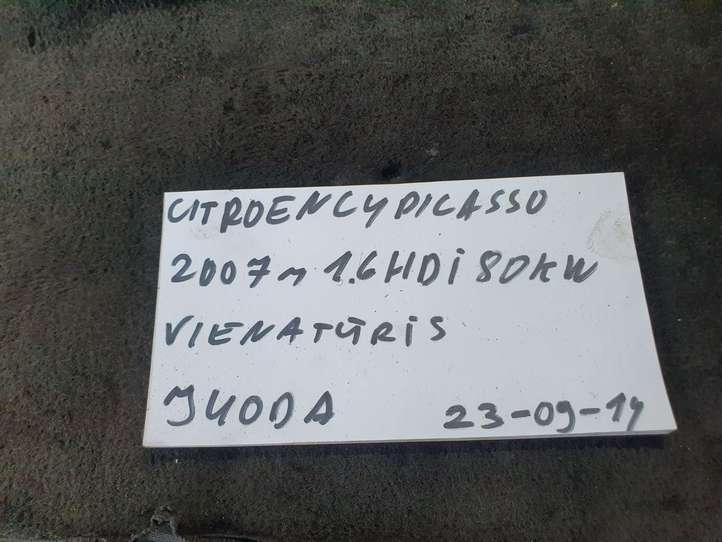 CITROEN C4 PICASSO
2007m 1.6HDi 80KW
VIENATŪRIS
JUODA 23-09-14